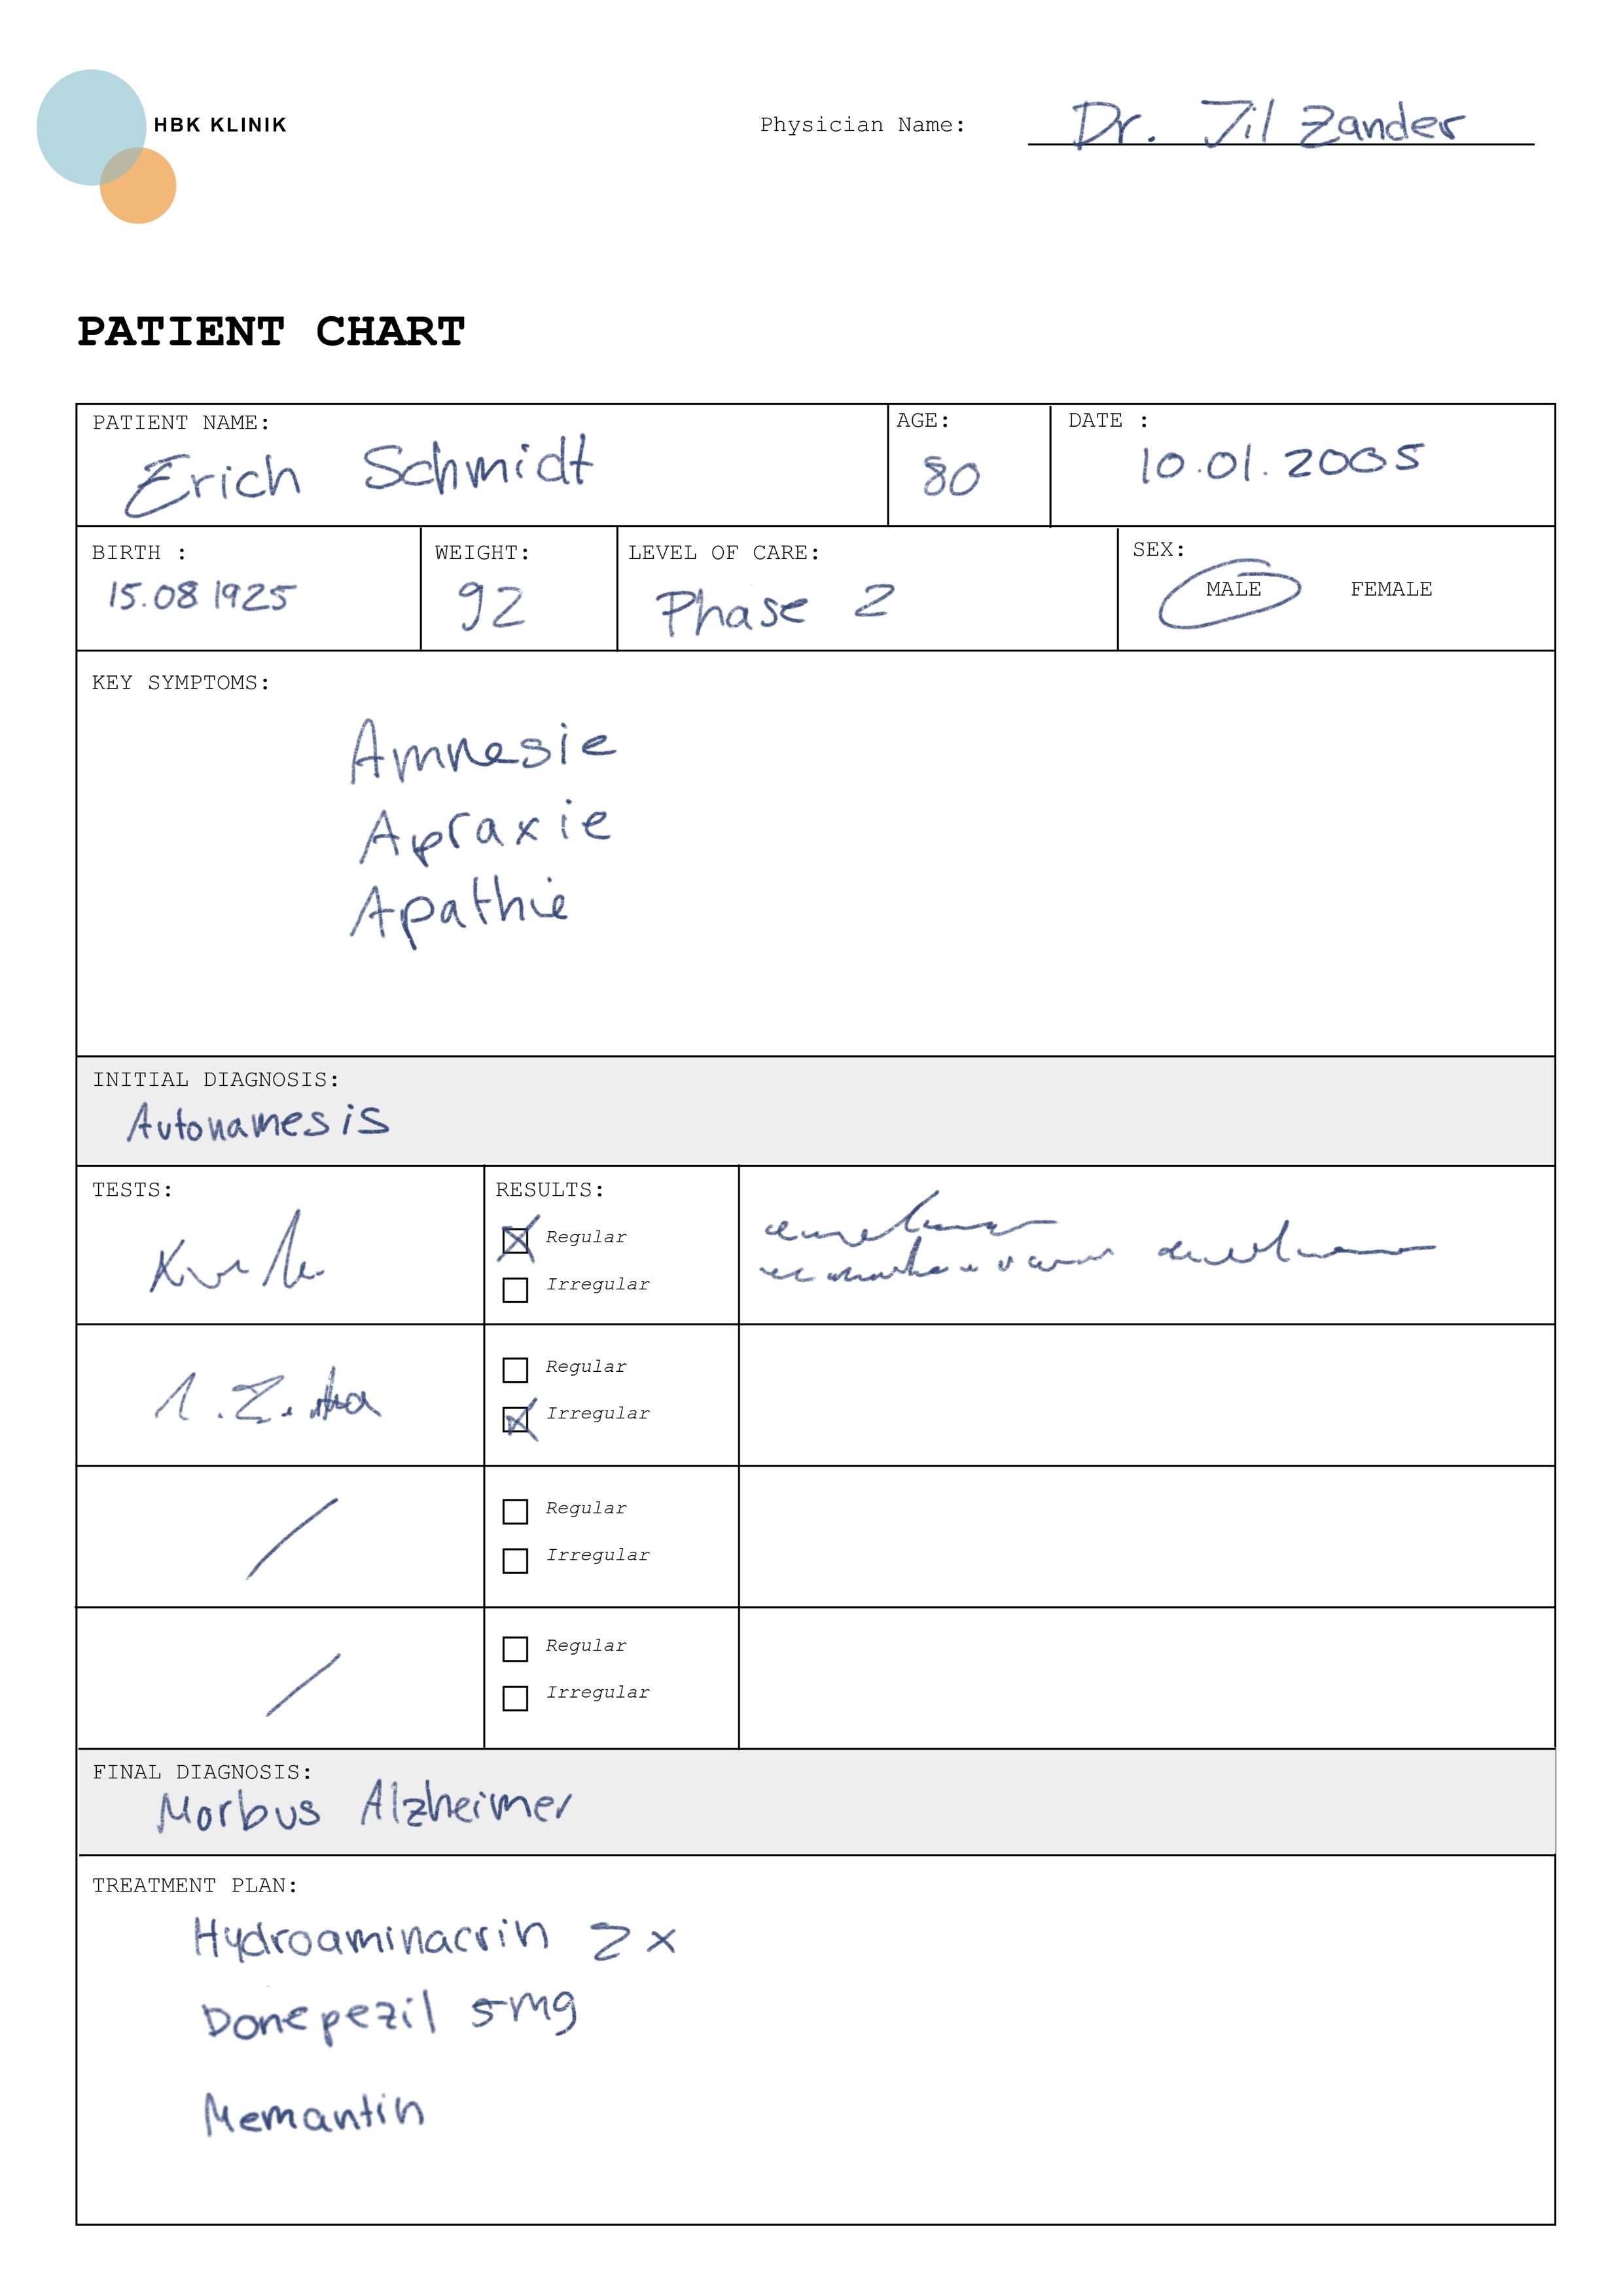 HBK KLINIK
Physician Name: Dr. Jil Zander
PATIENT CHART
PATIENT NAME: AGE: DATE :
Erich Schmidt 80 10.01.2005
BIRTH : WEIGHT: LEVEL OF CARE: SEX:
15.08 1925 92 Phase 2 MALE FEMALE
KEY SYMPTOMS:
Amnesie
Apraxie
Apathie
INITIAL DIAGNOSIS:
Autonamesis
TESTS: RESULTS:
Regular
Irregular
Regular
Irregular
Regular
Irregular
Regular
Irregular
FINAL DIAGNOSIS:
Morbus Alzheimer
TREATMENT PLAN:
Hydroaminacrin 2x
Donepezil 5mg
Memantin